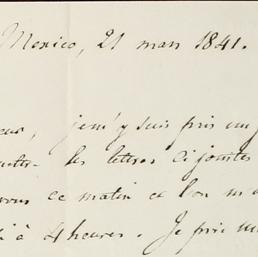 Mexico, 21 mars 1841.
j'en y suis pris un
les lettres ci jointes
vous ce matin et l'on m'a
à 4 heures. Je prie